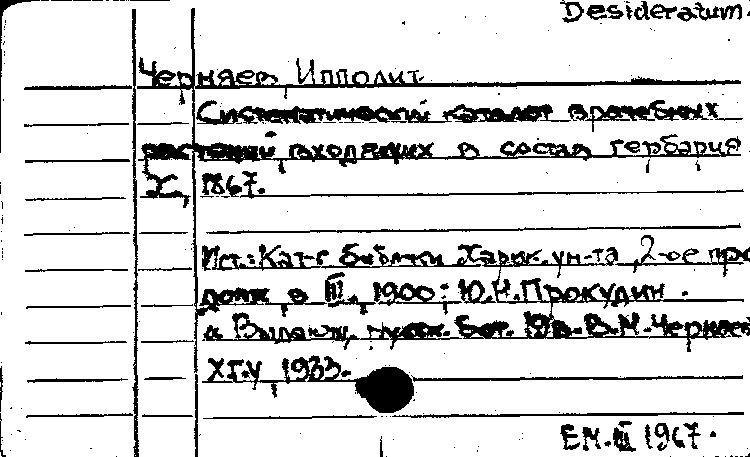 Desideratum.
Черняев, Ипполит
Систематический каталог врачебных
растений, входящих в состав гербария
Х., 1867.
Ист.: Кат-г библ-ки Харьк. ун-та, 2-ое про
долж. в III., 1900; Ю.Н. Прокудин.
Выдающ. бот. 19в. В.М. Черняев
ХГУ, 1953.
ЕМ. III 1967.